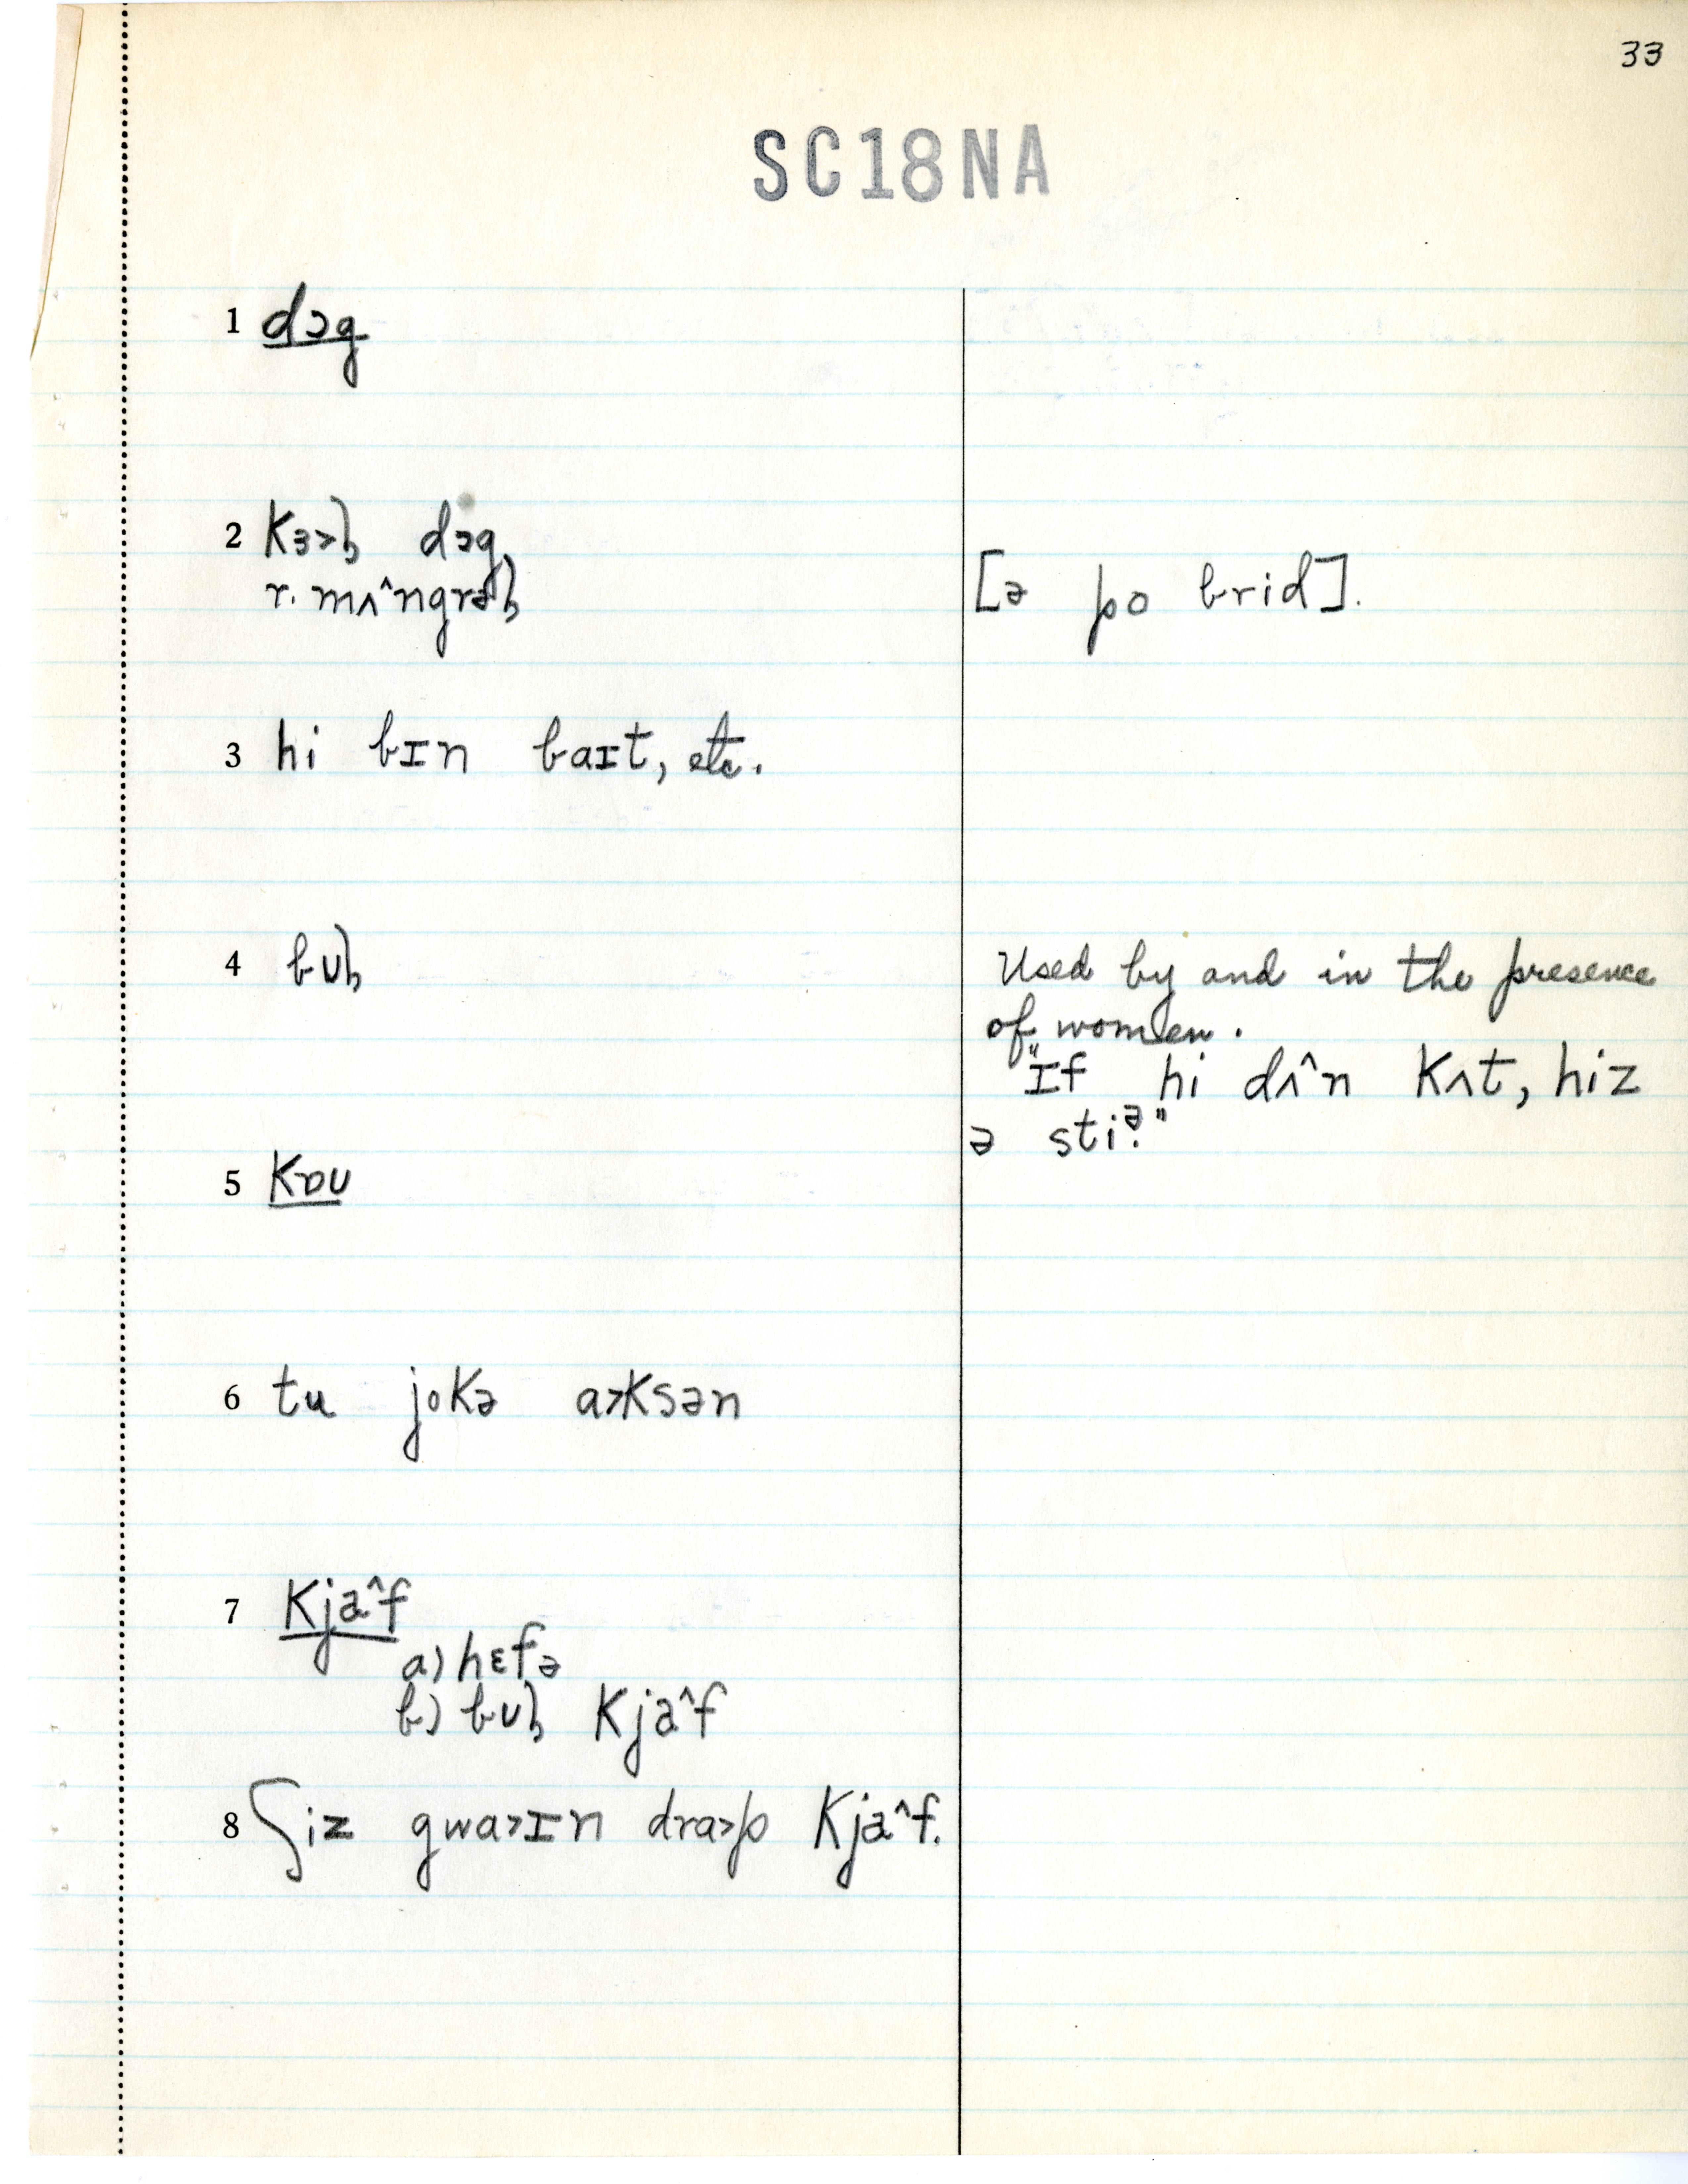 33
SC18NA
1 dɔg
2 kɜ˃ɫ dɔg
r. mʌ^ngrəɫ
[ə po brid].
3 hi bɪn baɪt, etc.
4 bʊɫ
Used by and in the presence
of women.
"ɪf hi dʌ^n kʌt, hiz
ə stiə."
5 kɒʊ
6 tu jokə a˃ksən
7 kja^f
a) hɛfə
b) bʊɫ kja^f
8 ʃiz gwa˃ɪn dra˃p kja^f.